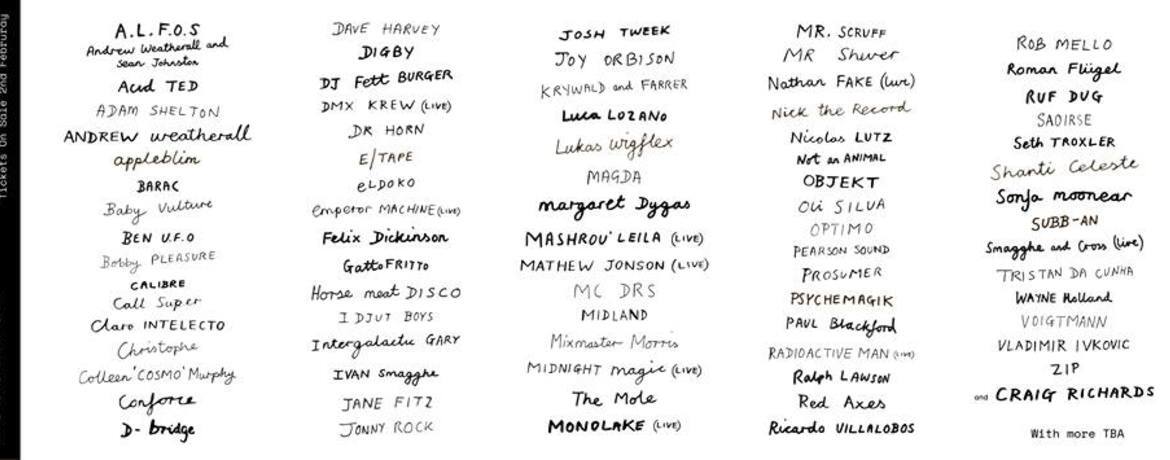 Tickets On Sale 2nd Februray
A.L.F.O.S
Andrew Weatherall and
Sean Johnston
Acid TED
ADAM SHELTON
ANDREW weatherall
appleblim
BARAC
Baby Vulture
BEN U.F.O
Bobby PLEASURE
CALIBRE
Call Super
Claro INTELECTO
Christophe
Colleen 'COSMO' Murphy
Conforce
D- bridge
DAVE HARVEY
DIGBY
DJ Fett BURGER
DMX KREW (LIVE)
DR HORN
E/TAPE
eLDOKO
emperor MACHINE (LIVE)
Felix Dickinson
Gatto FRITTO
Horse meat DISCO
I DJUT BOYS
Intergalactic GARY
IVAN Smagghe
JANE FITZ
JONNY ROCK
JOSH TWEEK
JOY ORBISON
KRYWALD and FARRER
Luca LOZANO
Lukas wigflex
MAGDA
margaret Dygas
MASHROU' LEILA (LIVE)
MATHEW JONSON (LIVE)
MC DRS
MIDLAND
Mixmaster Morris
MIDNIGHT magic (LIVE)
The Mole
MONOLAKE (LIVE)
MR. SCRUFF
MR Shiver
Nathan FAKE (Live)
Nick the Record
Nicolas LUTZ
Not an ANIMAL
OBJEKT
Oli SILVA
OPTIMO
PEARSON SOUND
PROSUMER
PSYCHEMAGIK
PAUL Blackford
RADIOACTIVE MAN (LIVE)
Ralph LAWSON
Red Axes
Ricardo VILLALOBOS
ROB MELLO
Roman Flügel
RUF DUG
SAOIRSE
Seth TROXLER
Shanti Celeste
Sonja moonear
SUBB-AN
Smagghe and Cross (Live)
TRISTAN DA CUNHA
WAYNE Holland
VOIGTMANN
VLADIMIR IVKOVIC
ZIP
and CRAIG RICHARDS
With more TBA